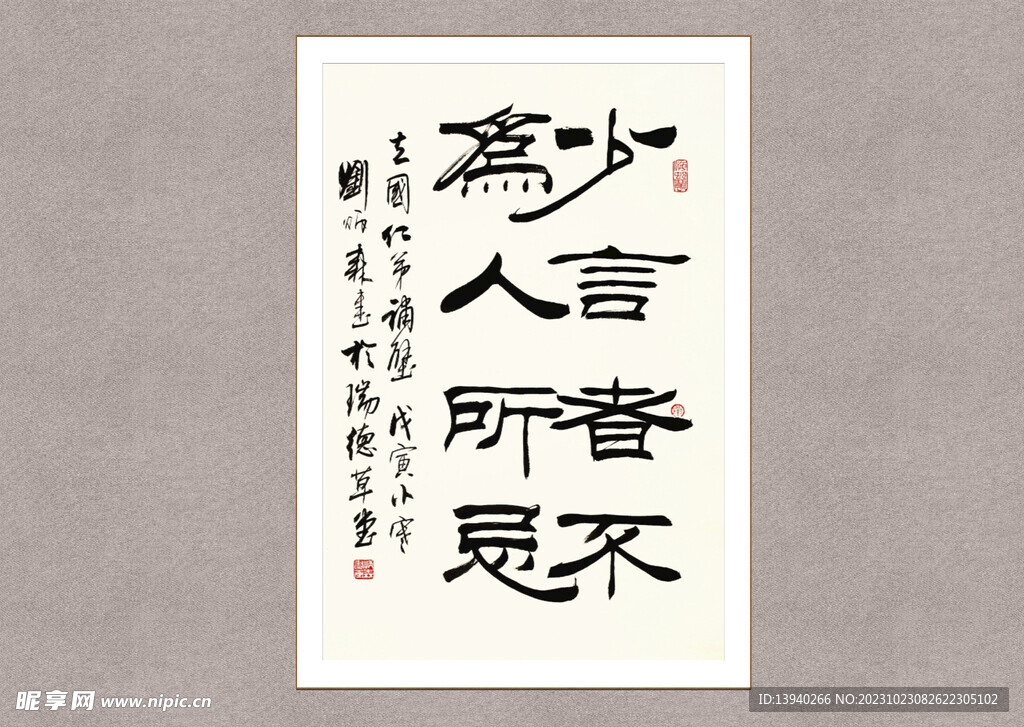 少言者不
為人所忌
立國仁弟補壁 戊寅小寒
劉炳森書於瑞德草堂
昵享网 www.nipic.cn
ID:13940266 NO:20231023082622305102